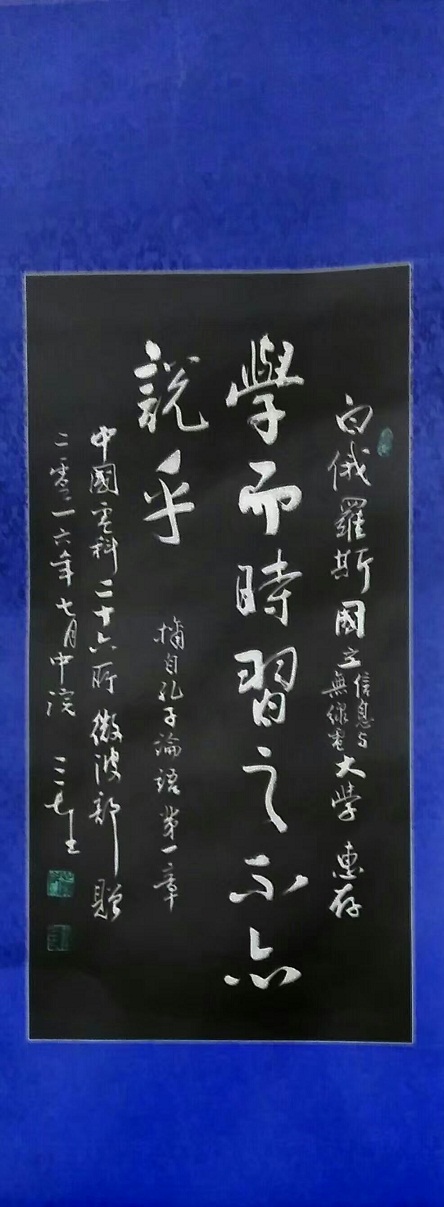 白俄羅斯國立信息与無線電大學 惠存
學而時習之不亦
說乎
摘自孔子論語第一章
中國電科二十六所微波部 贈
二零一六年七月中浣